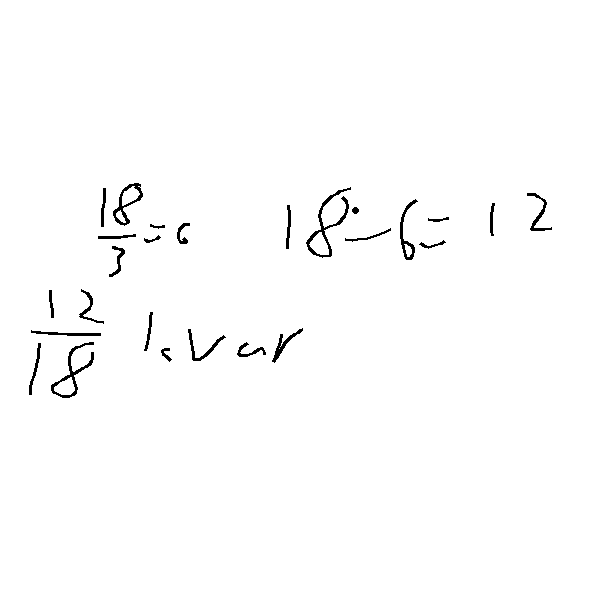 18/3=6 18-6=12
12/18 kvar